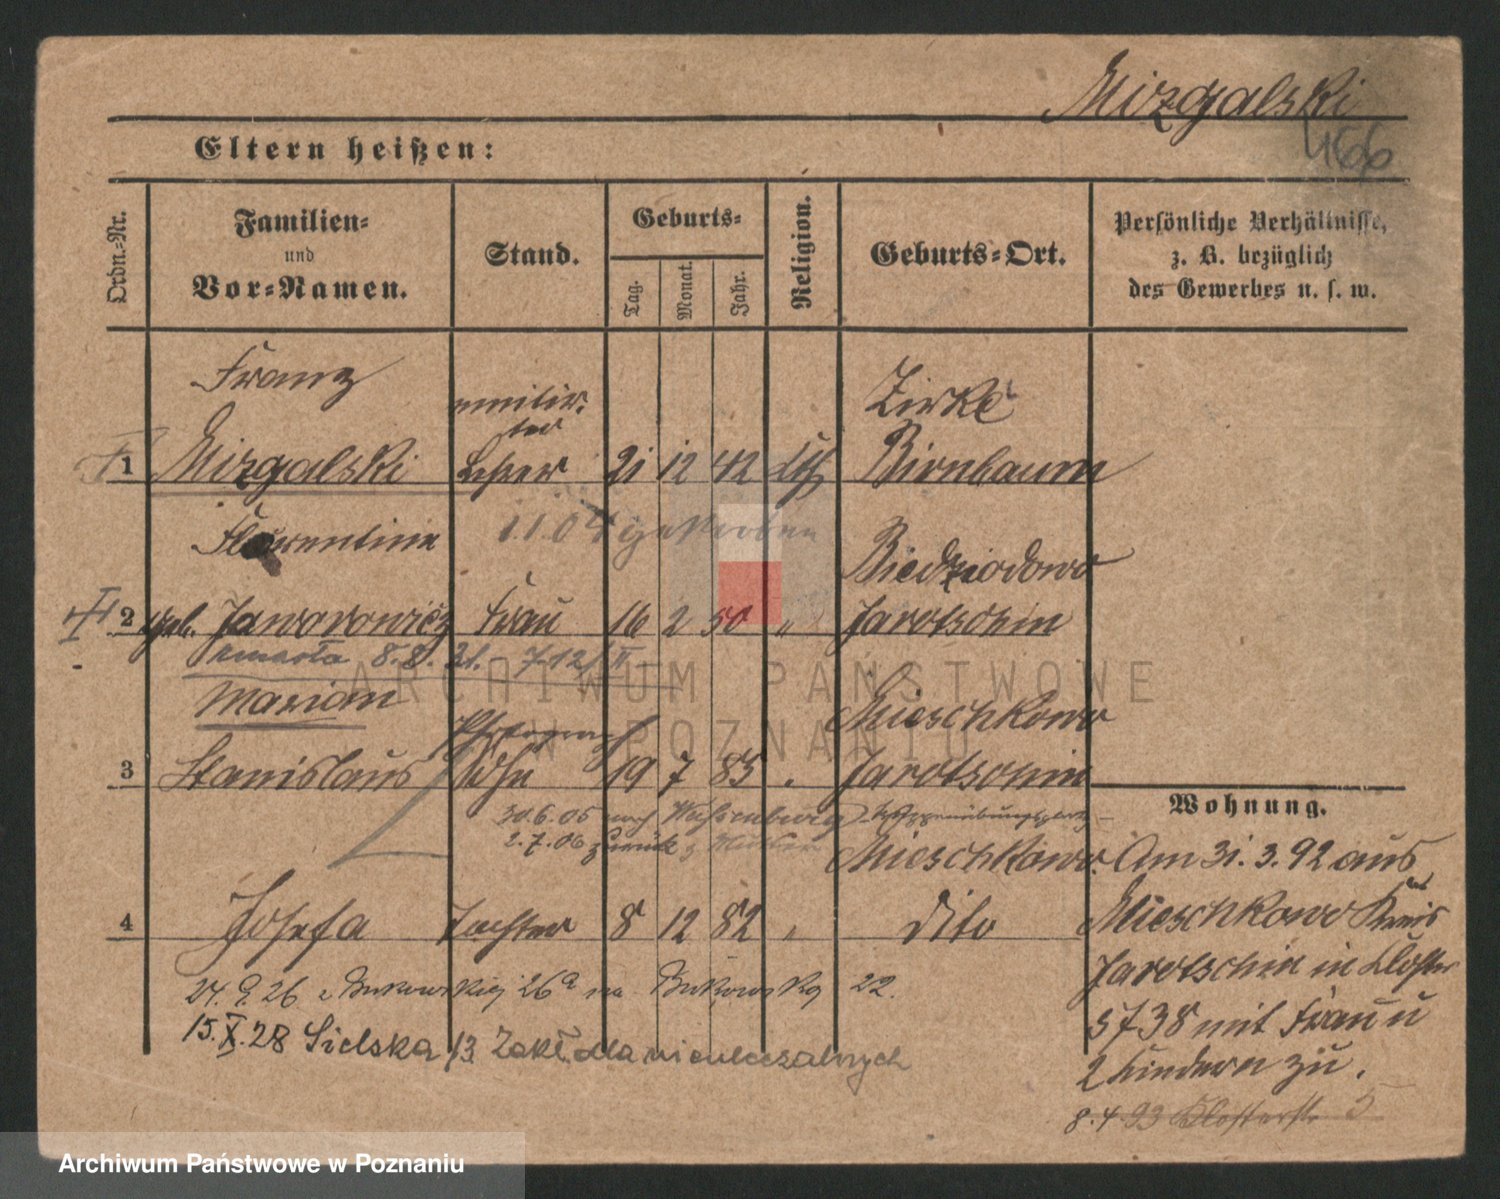 Mizgalski
466
Eltern heißen:
Ordn.-Nr.
Familien-
und
Vor-Namen.
Stand.
Geburts-
Tag.
Monat.
Jahr.
Religion.
Geburts-Ort.
Persönliche Verhältnisse,
z. B. bezüglich
des Gewerbes u. s. w.
Franz
emitir-
ter
Zirke
1 Mizgalski Lehrer 21 12 42 kth Birnbaum
Florentine
1.1.04 gestorben
Biedziodowo
2 geb. Jaworowicz Frau 16 2 50 " Jarotschin
zmarła 8.8.21. - 712/II
Marian
Photograph
Mieschkowo
3 Stanislaus Sohn 19 7 85 " Jarotschin
30.6.05 nach Truppenübungsplatz
2.7.06 zurück z Mutter
Wohnung.
Mieschkowo
4 Josefa Tochter 8 12 82 " dito
Am 31.3.92 aus
Mieschkowo Kreis
Jarotschin in Kloster
37 38 mit Frau u
2 Kindern zu.
8.4.93 Klosterstr. 5
24.9.26 z Bukowskiej 26a na Bukowską 22.
15.X.28 Sielska 13 Zakł. dla nieuleczalnych
ARCHIWUM PAŃSTWOWE
W POZNANIU
Archiwum Państwowe w Poznaniu